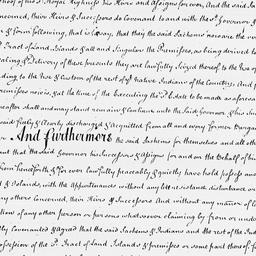 said Royal Highness his Heirs and Assigns for ever, And the said
concerned, their Heirs & Successors do Covenant to and with the sd Governor &
& form following, that is to say, that they the said Sachems now are the
Tract of Land Islands & all and Singular the Premisses, as being derived to
Sealing & Delivery of these presents they are lawfully seized thereof to the Use of
according to the use & Custom of the rest of ye Native Indians of the Country, And
premisses now is, & at the time of the Executing the Estate to be made as aforesaid
hereafter shall and may stand remain & Continue unto the said Governor & his
said freely & clearly discharged & Acquitted from all and every former Bargain
And furthermore the said Sachems for themselves and all others
that the said Governor his Successors & Assigns for and on the Behalf of his
from henceforth & for ever lawfully peaceably & quietly have hold possess and
& Islands, with the Appurtenances without any let resistance disturbance or
any others concerned, their Heirs & Successors And without any manner of
of any other person or persons whatsoever claiming by from or under
Covenanted & agreed that the said Sachems & Indians and the rest of the
possession of the Tract of Land, Islands & premisses or some part thereof, for